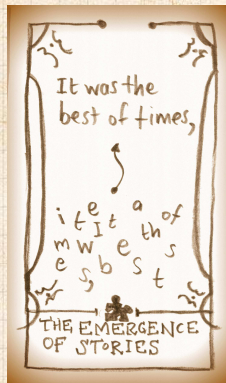 It was the
best of times,
i t e a of
t I t th
m w e s
e s, b s t
THE EMERGENCE
OF STORIES